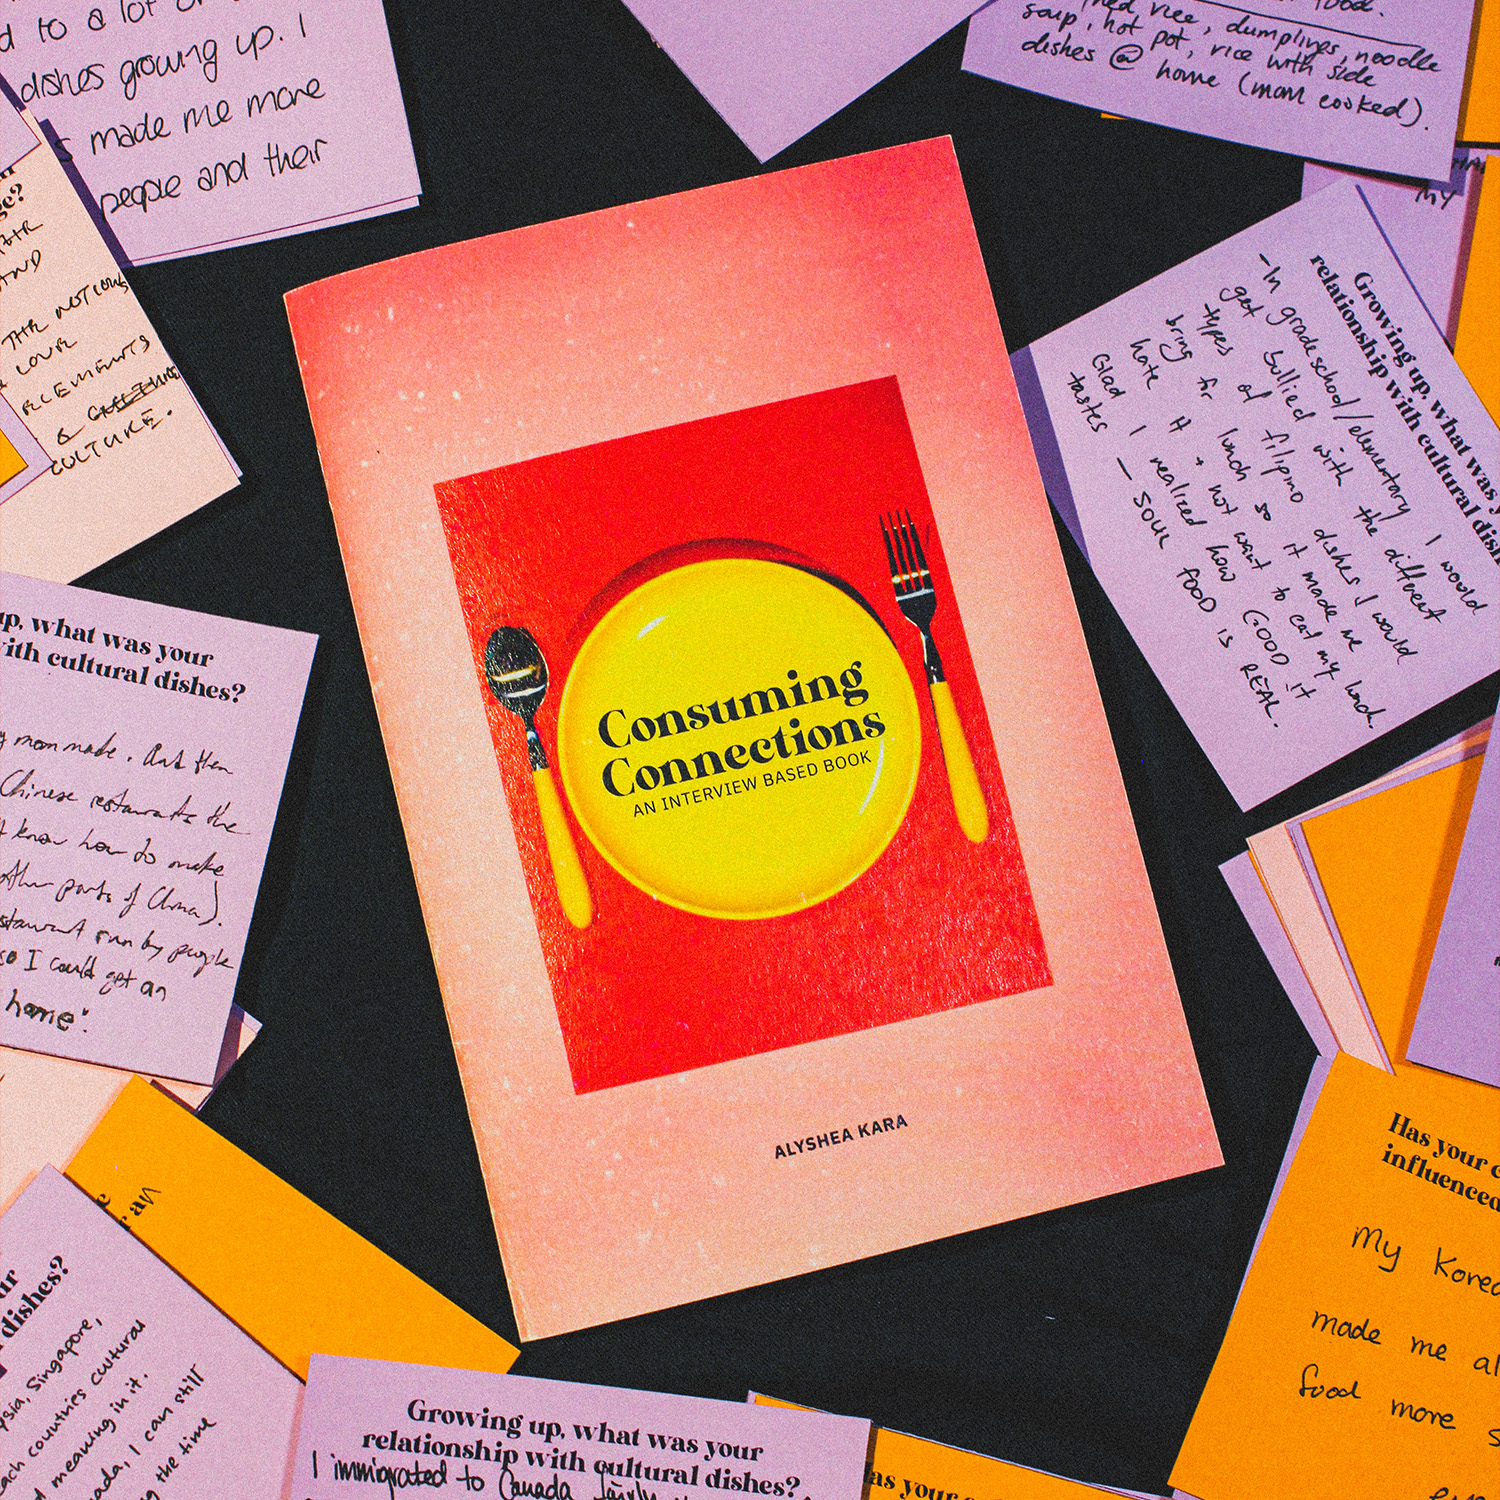 d to a lot
dishes growing up. I
s made me more
people and their
food.
rice, dumplings, noodle
soup, hot pot, rice with side
dishes @ home (mom cooked).
MY
THE NOTIONS
& LOVE
& CULTURE
CULTURE.
Growing up, what was y
relationship with cultural dish
-In gradeschool/elementary I would
get bullied with the different
types of filipino dishes I would
bring for lunch so it made me
hate it + not want to eat my lunch.
Glad I realized how GOOD it
tastes — SOUL FOOD IS REAL.
up, what was your
with cultural dishes?
y mom made. And then
Chinese restaurants the
t know how to make
other parts of China).
staurant run by people
so I could get an
home".
Consuming
Connections
AN INTERVIEW BASED BOOK
ALYSHEA KARA
Has your c
influenced
My Korea
made me al
food more s
ur
dishes?
ysia, Singapore,
each countries cultural
d meaning in it.
nada, I can still
g the time
r an
Growing up, what was your
relationship with cultural dishes?
I immigrated to Canada fairly
as your